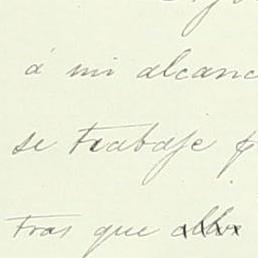 á mi alcanc
se trabaje p
tras que